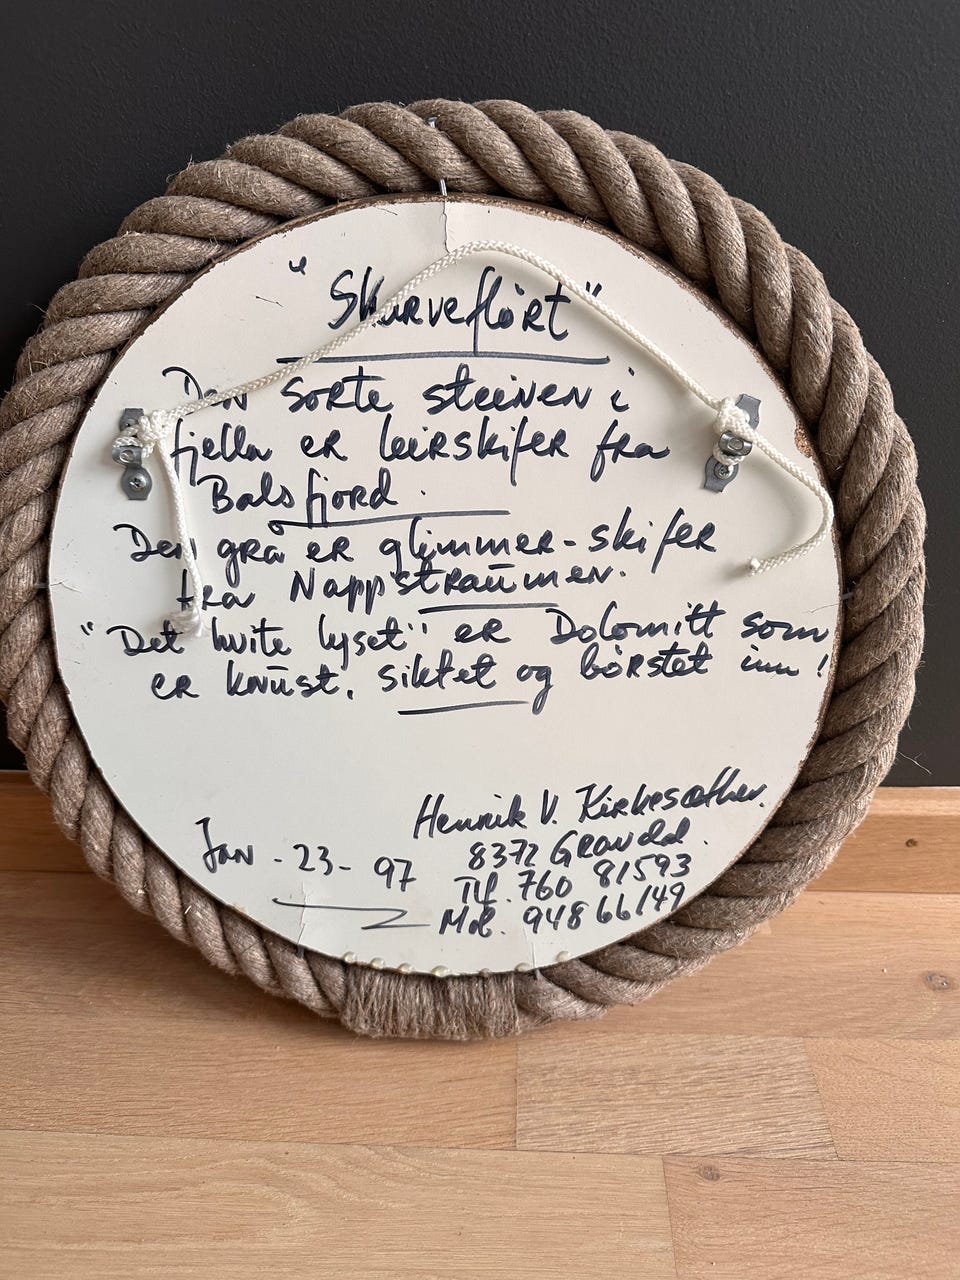 "Skarveflørt"
Den sorte steinen i
fjella er leirskifer fra
Balsfjord.
Den grå er glimmer-skifer
fra Nappstraumen.
"Det hvite lyset" er Dolomitt som
er knust, siktet og børstet inn!
Henrik V. Kirkesæther.
8372 Gravdal.
Tlf. 760 81593
Mob. 948 66149
Jan - 23 - 97